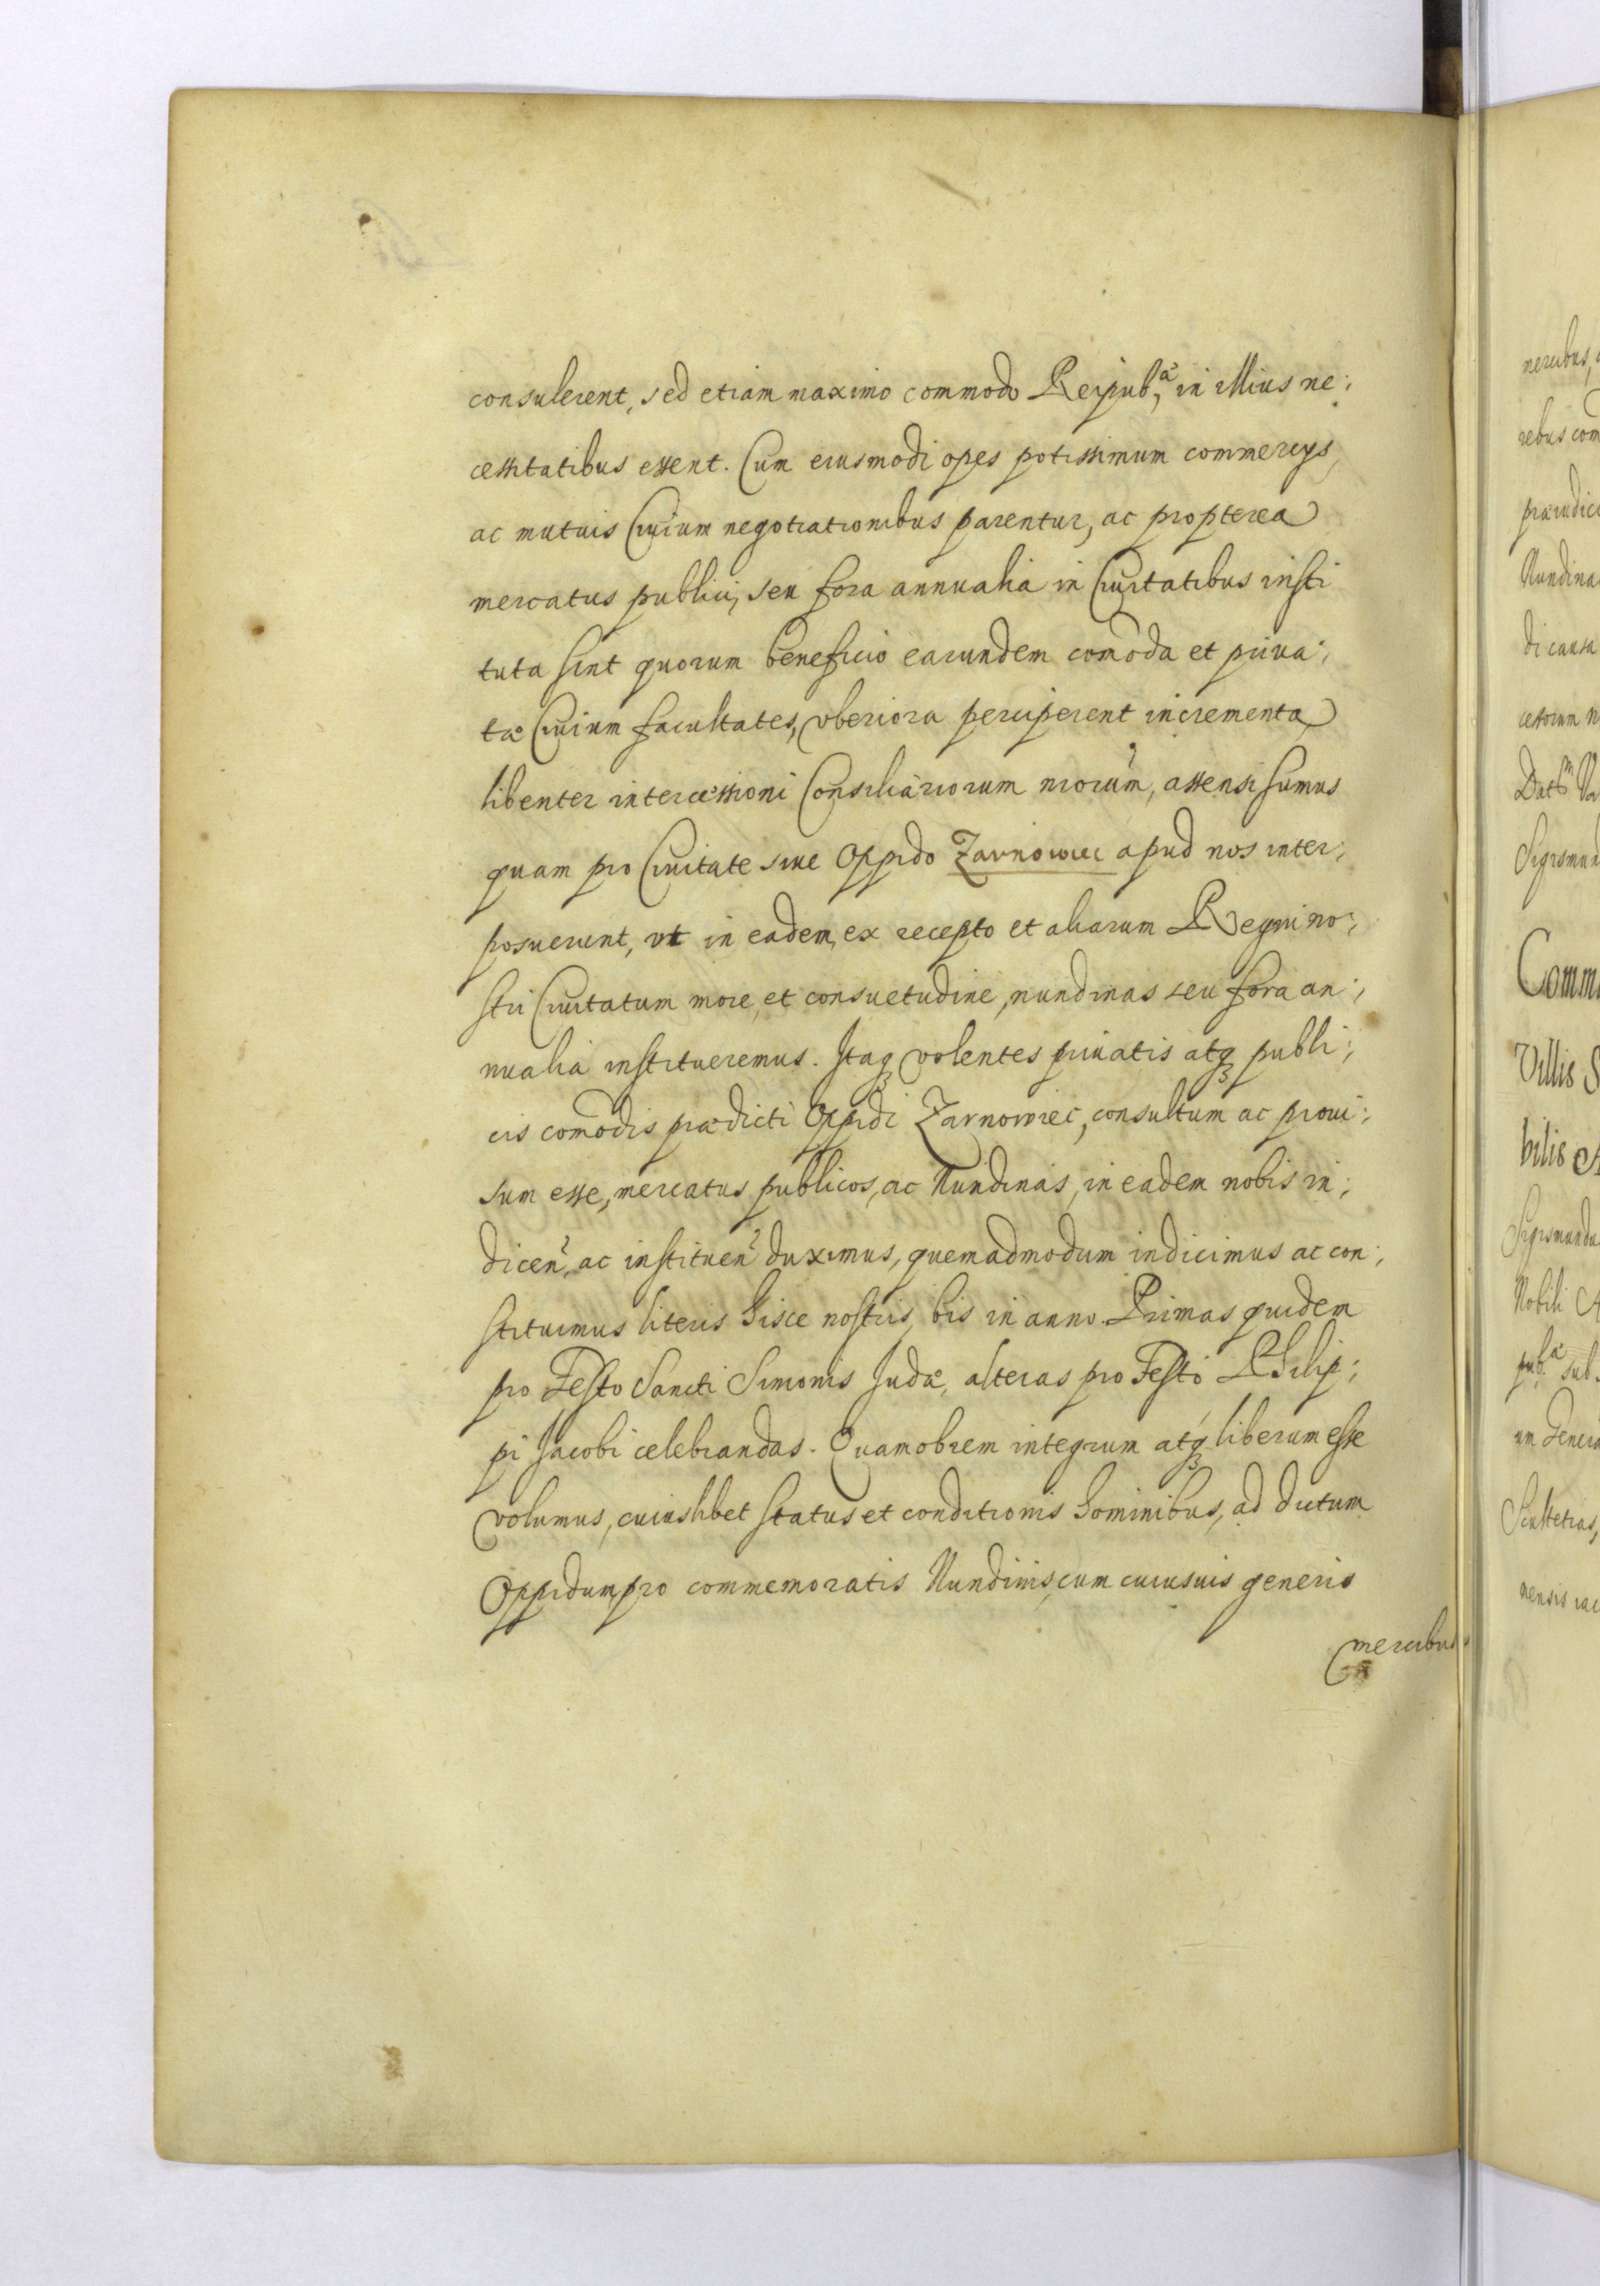 consulerent, sed etiam maximo commodo Reipub,ᵃᵉ in illius ne:
cessitatibus essent. Cum eiusmodi opes potissimum commercys,
ac mutuis Ciuium negotiationibus parentur, ac propterea
mercatus publici, seu fora annualia in Ciuitatibus insti
tuta sint quorum beneficio earundem com̃oda et priua:
tæ Ciuium facultates, vberiora perciperent incrementa
libenter intercessioni Consiliariorum nrorum, assensi sumus
quam pro Ciuitate siue Oppido Zarnowiec apud nos inter:
posuerunt, vt in eadem, ex recepto et aliarum Regni no:
stri Ciuitatum more, et consuetudine, nundinas seu fora an:
nualia institueremus. Itaqꝫ volentes priuatis atqꝫ publi:
cis com̃odis prædicti Oppidi Zarnowiec, consultum ac proui:
sum esse, mercatus publicos, ac Nundinas, in eadem nobis in:
dicen̄, ac instituen̄ duximus, quemadmodum indicimus ac con:
stituimus literis hisce nostris, bis in anno. Primas quidem
pro Festo Sancti Simonis Judæ, alteras pro Festo Philip:
pi Jacobi celebrandas. Quamobrem integrum atqꝫ liberum esse
volumus, cuiuslibet status et conditionis hominibus, ad dictum
Oppidum pro commemoratis Nundinis, cum cuiusuis generis
mercibus
nercibus,
rebus com
præiudici
Nundina
di causa
Datᵐ
Sigismund
Comm
Villis S
bilis A
Sigismundu
Nobili A
pub,ᵃ sub
um Genera
Scultetias,